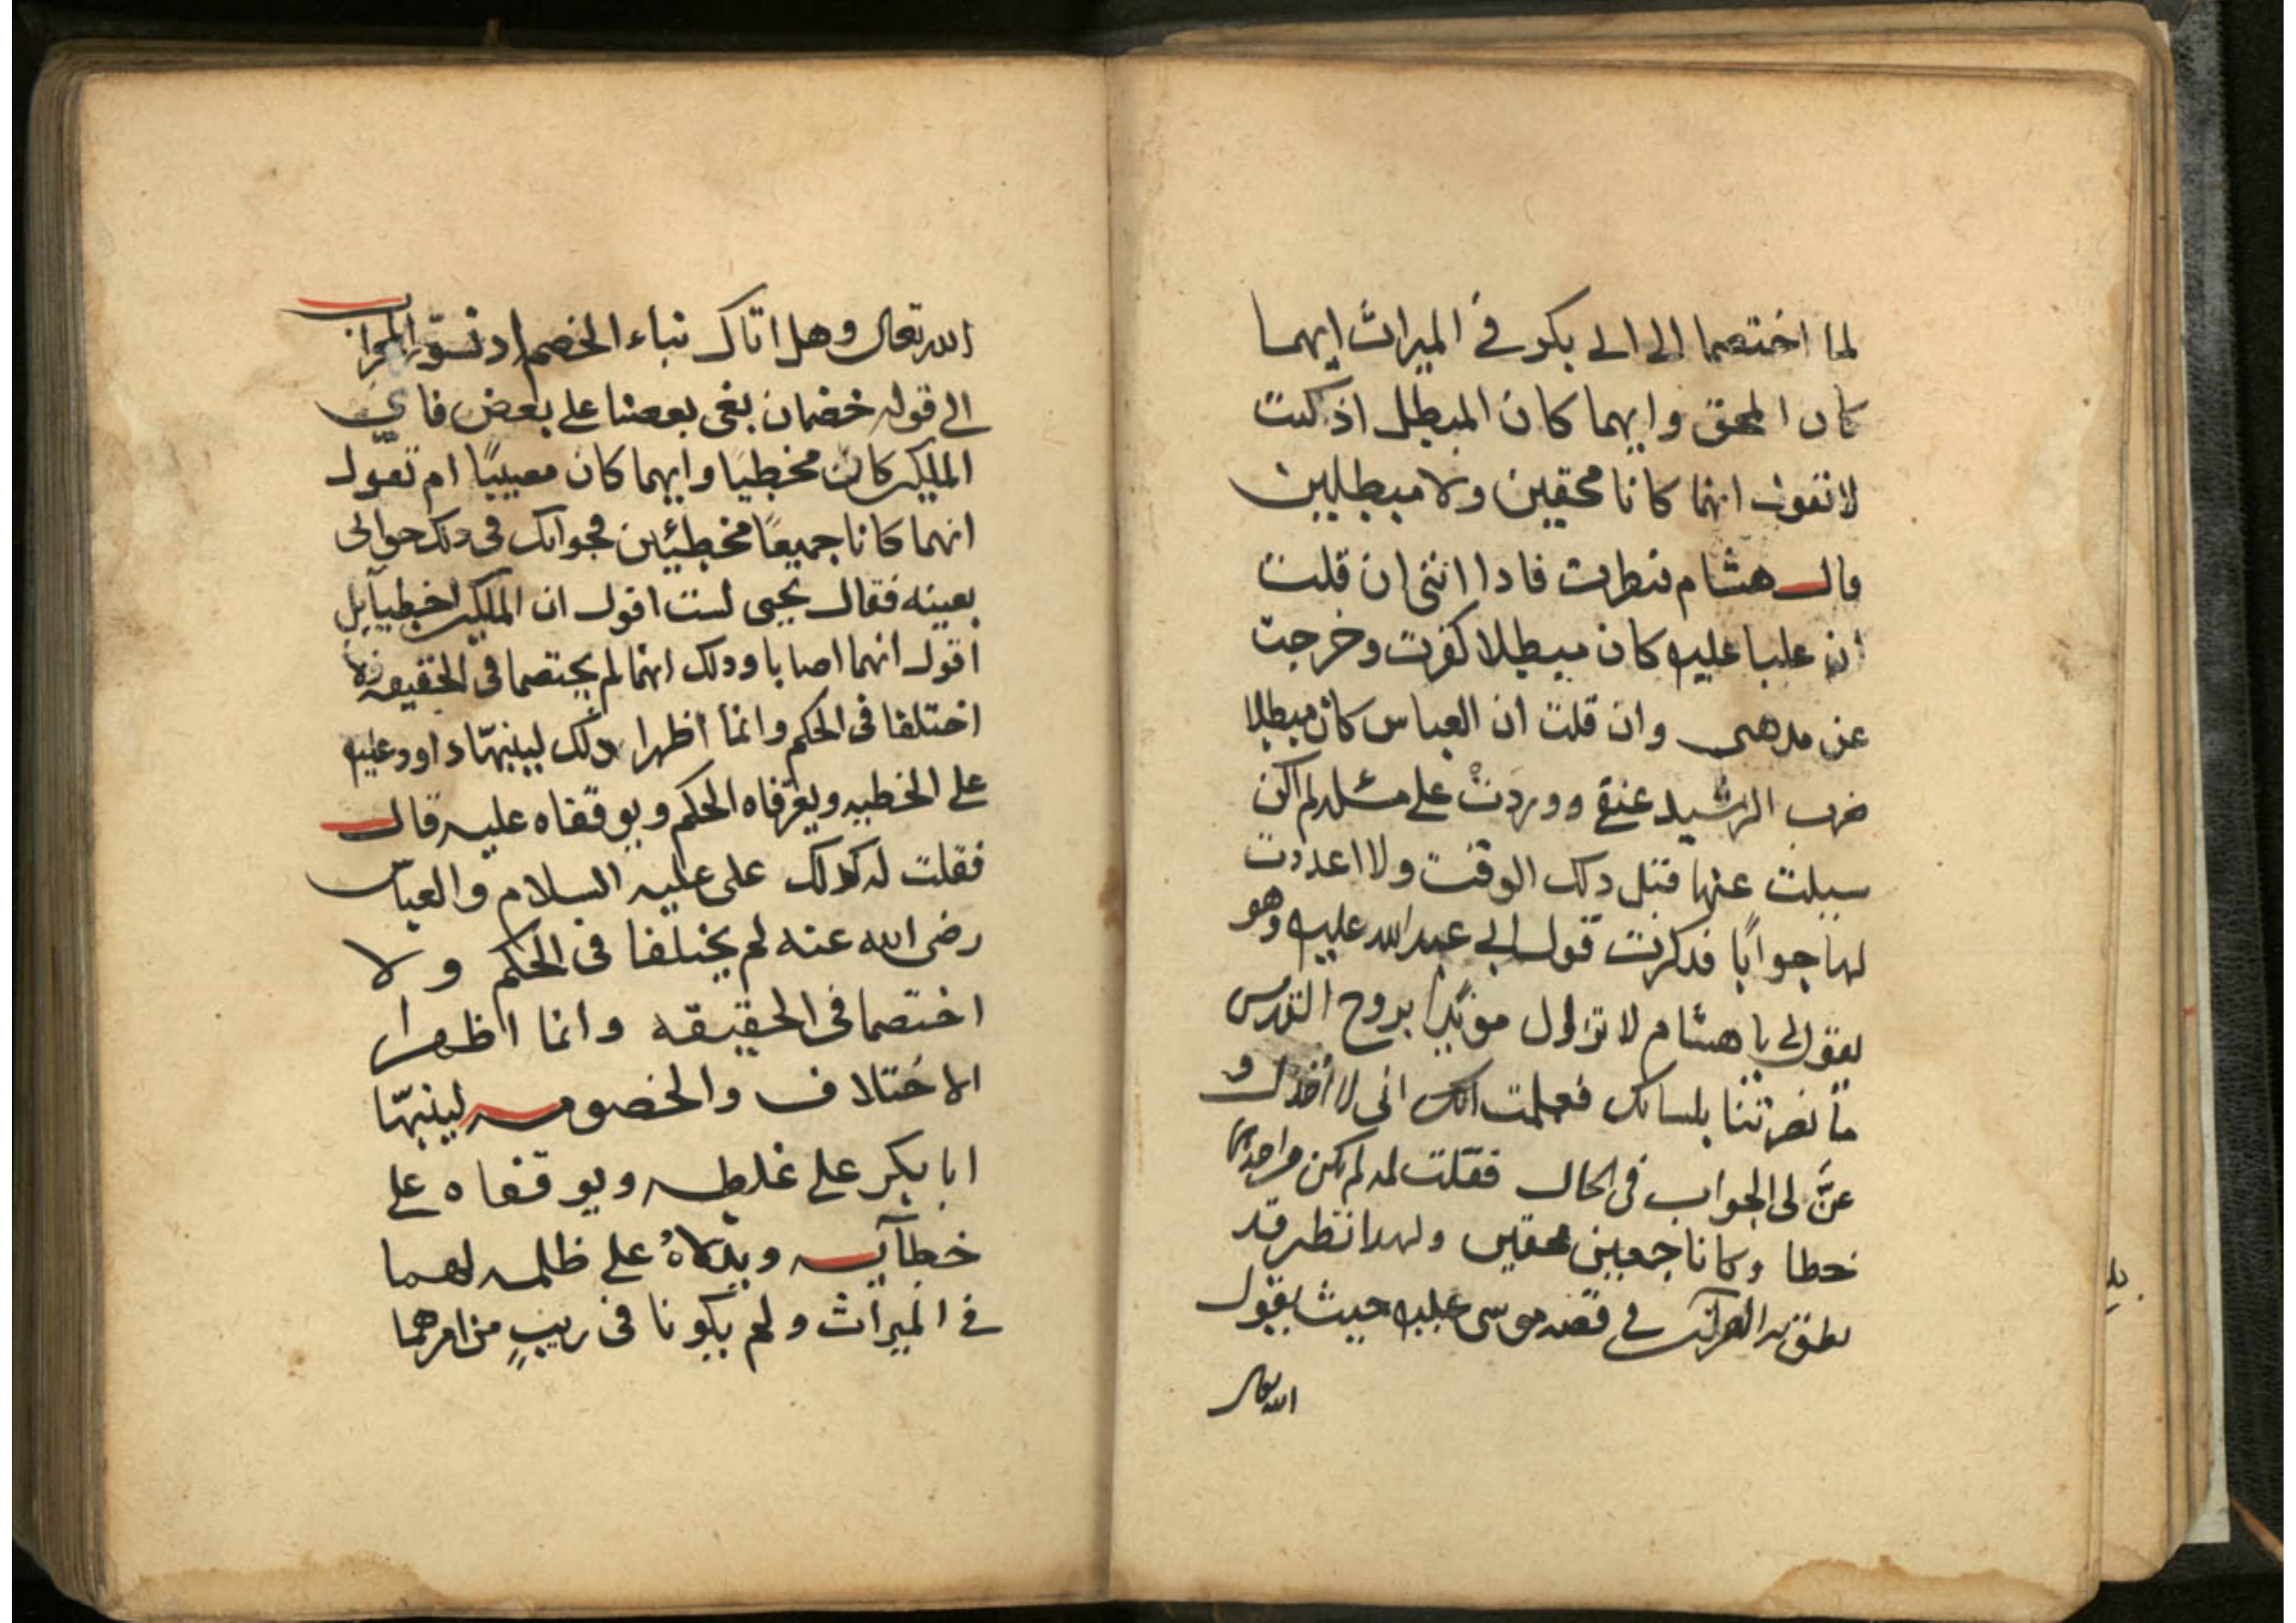 لما اختصما الى ابى بكر فى الميراث ايهما
كان المحق وايهما كان المبطل اذ كنت
لا تقول انهما كانا محقين ولا مبطلين
قال هشام فنظرت فاذا اننى ان قلت
ان عليا عليه كان مبطلا كفرت وخرجت
عن مذهبى وان قلت ان العباس كان مبطلا
ضرب الرشيد عنقى ووردت على مسئلة لم اكن
سيلت عنها قبل ذلك الوقت ولا اعددت
لها جوابًا فذكرت قول ابى عبد الله عليه وهو
يقول لى يا هشام لا تزال مؤيدًا بروح القدس
ما نصرتنا بلسانك فعلمت انى لا اخذل و
عنّ لى الجواب فى الحال فقلت له لم يكن من احدهما
خطا وكانا جميعين محقين ولهذا نظير قد
نطق به القرآن فى قصه موسى عليه حيث يقول
الله تعالى
الله تعالى وهل اتاك نباء الخصم اذ تسوّروا المحراب
الى قوله خصمان بغى بعضنا على بعض فاى
الملكين كان مخطيًا وايهما كان مصيبًا ام تقول
انهما كانا جميعًا مخطئين فجوابك فى ذلك جوابى
بعينه فقال يحيى لست اقول ان الملكين اخطيا بل
اقول انهما اصابا وذلك انهما لم يختصما فى الحقيقه ولا
اختلفا فى الحكم وانما اظهرا ذلك لينبّها داود عليه
على الخطيه ويعرّفاه الحكم ويوقفاه عليه قال
فقلت له كذلك على عليه السلام والعباس
رضى الله عنه لم يختلفا فى الحكم ولا
اختصما فى الحقيقه وانما اظهرا
الاختلاف والخصومه لينبّها
ابا بكر على غلطه ويوقفاه على
خطآيه ويدلاهُ على ظلمه لهما
فى الميراث ولم يكونا فى ريبٍ من امرهما